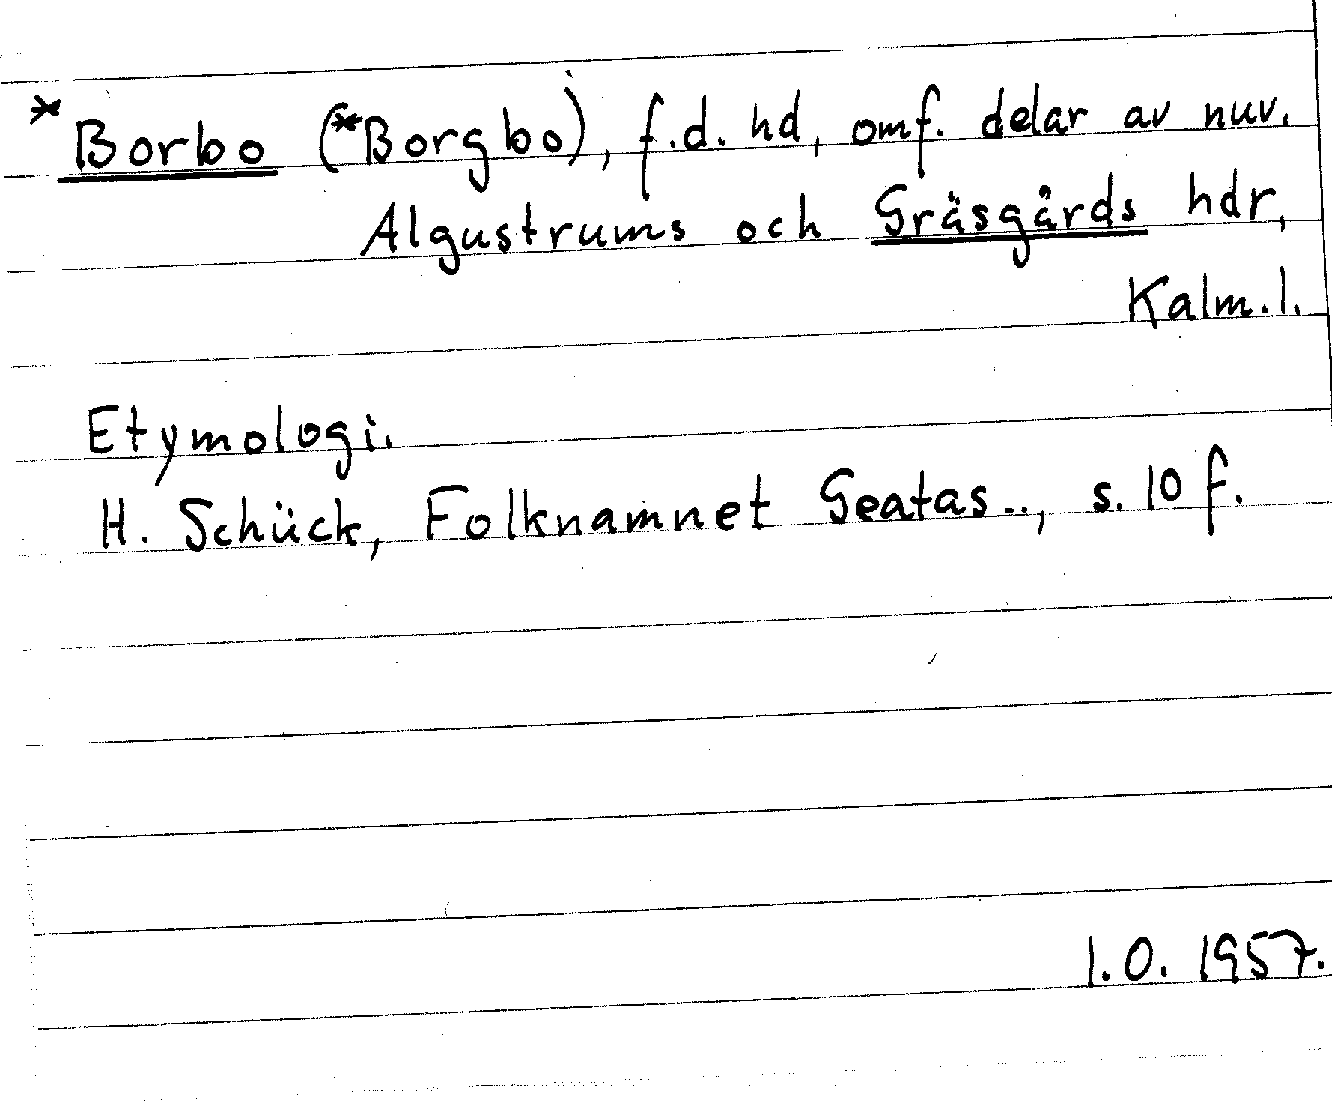 *Borbo (*Borgbo), f.d. hd, omf. delar av nuv.
Algustrums och Gräsgårds hdr,
Kalm.l.
Etymologi.
H. Schück, Folknamnet Geatas.., s. 10 f.
I.O. 1957.